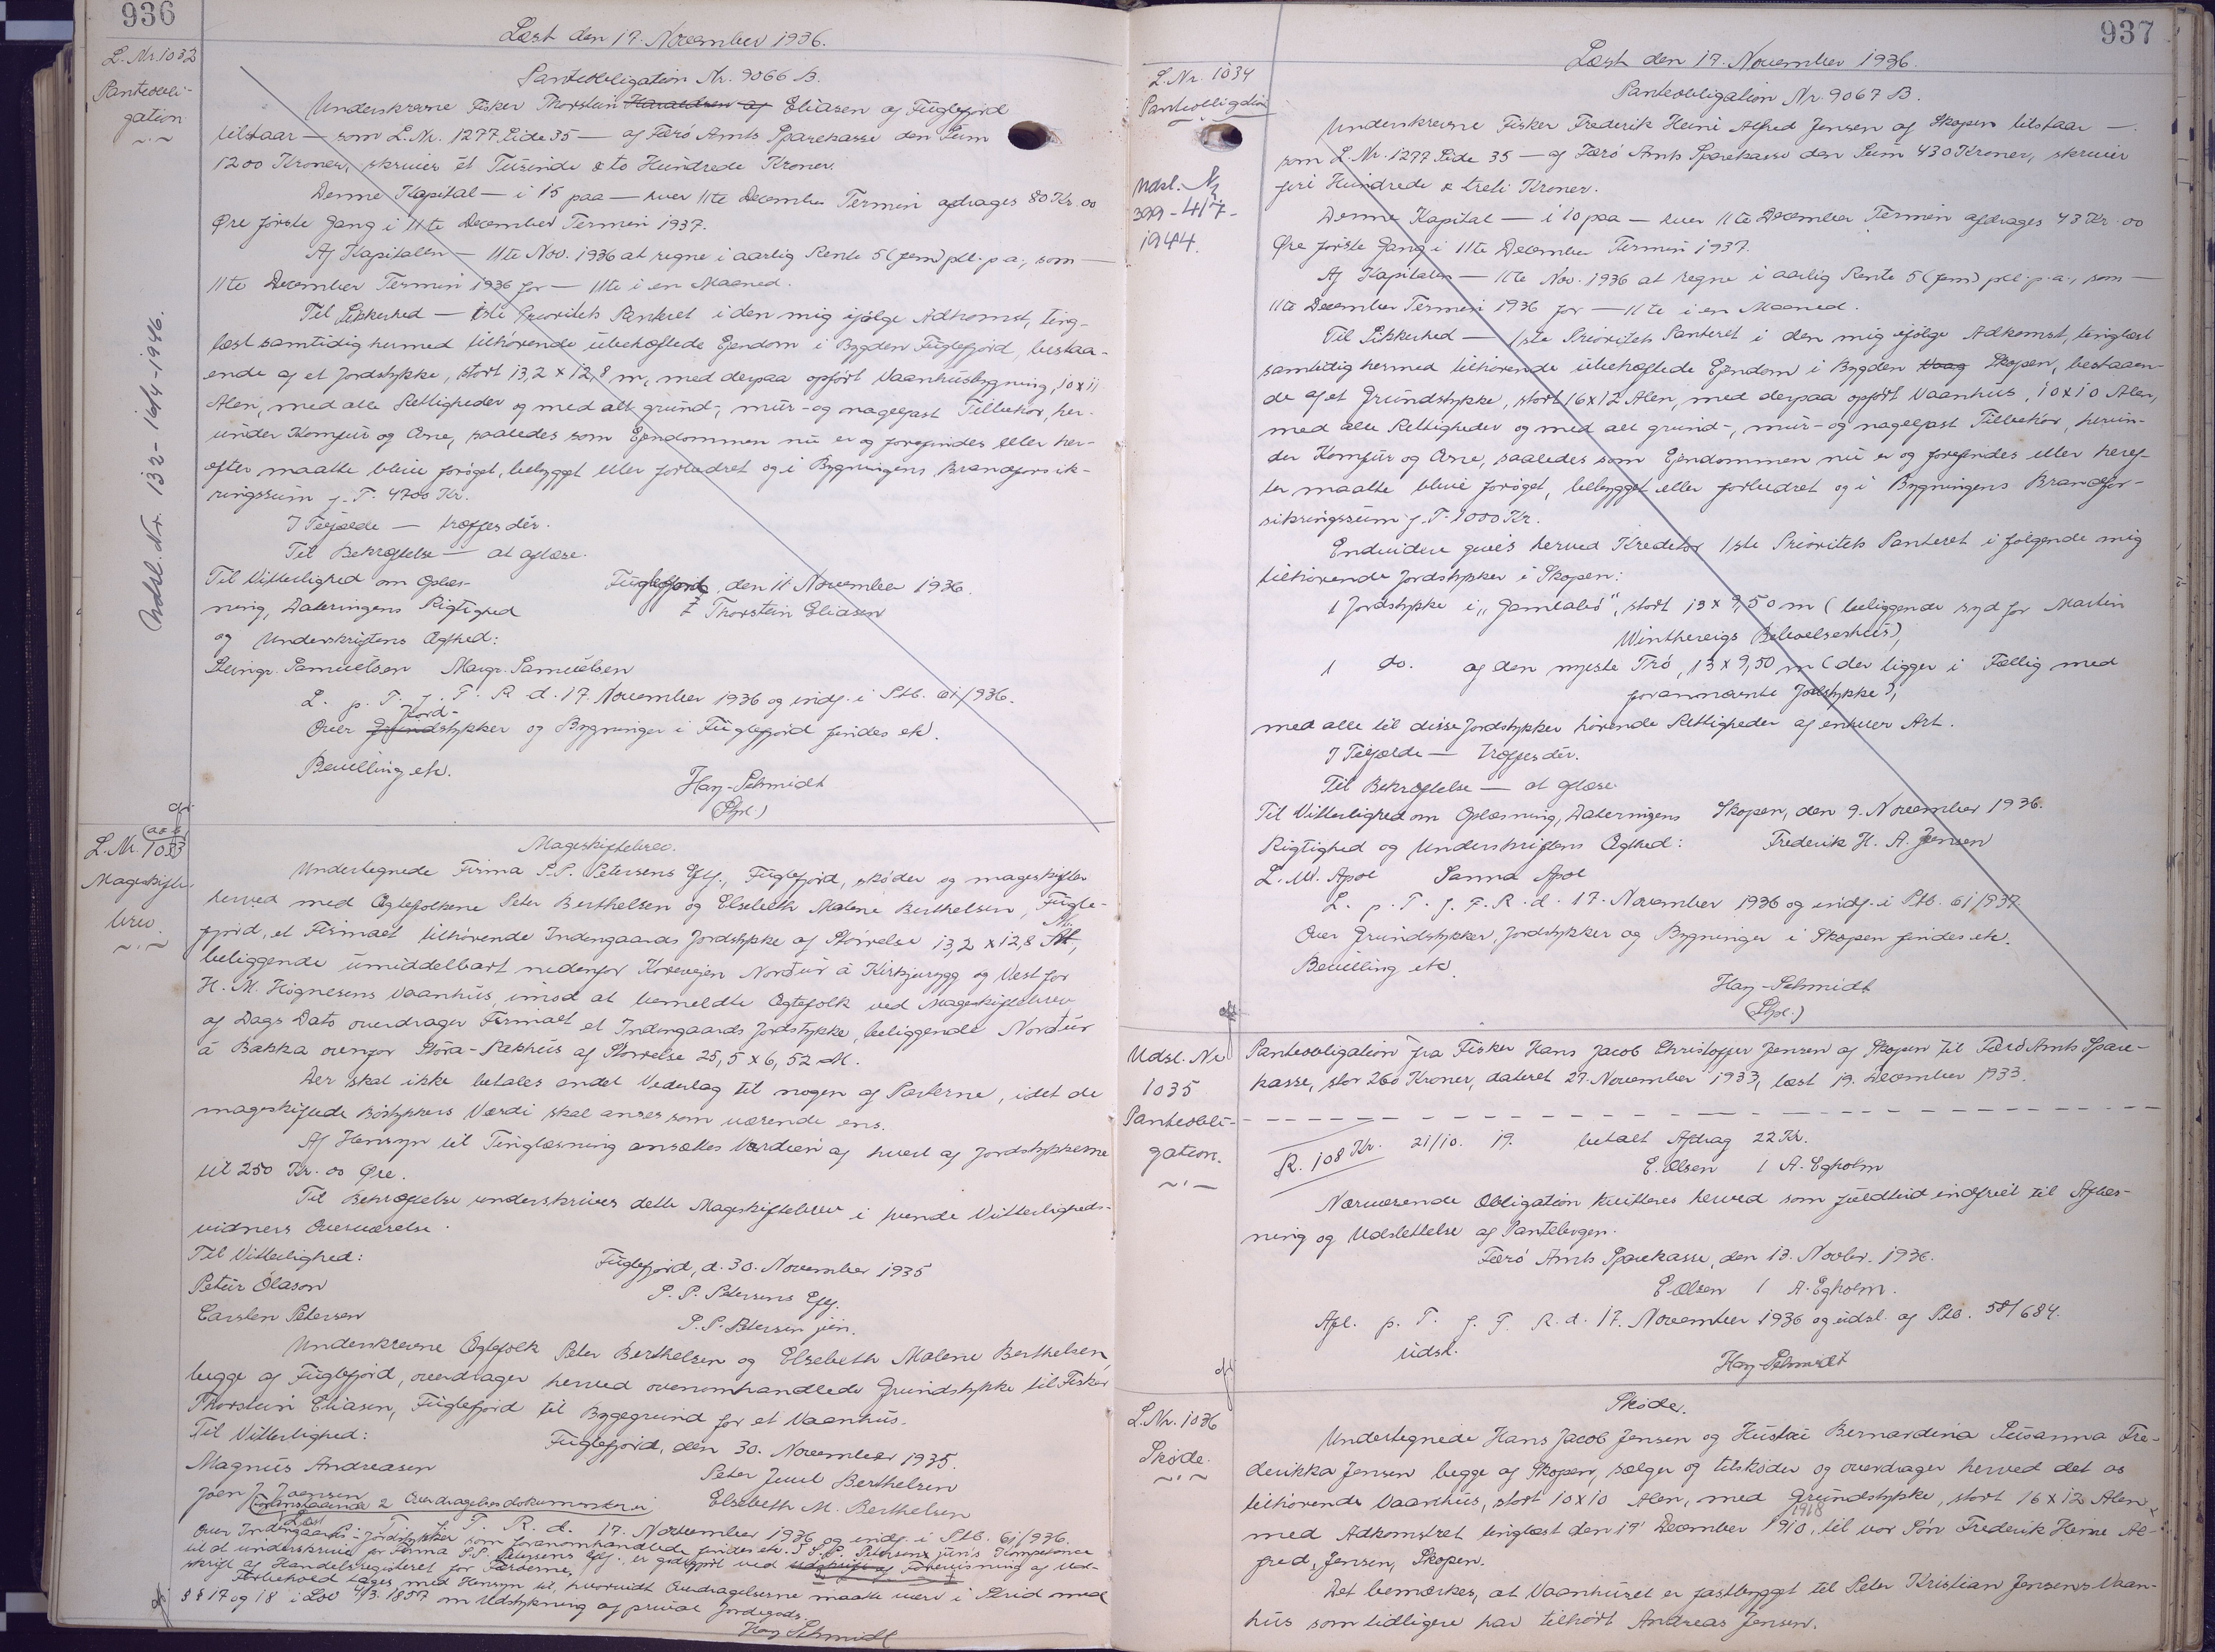 936
Læst den 17. November 1936.
L. Nr. 1032
Panteobli-
gation
Udsl. Nr. 132 - 16/4 - 1946.
Panteobligation Nr. 9066 B.
Underskrevne Fisker Thorstein Haraldsen af Eliasen af Fuglefjord
tilstaar — som L. Nr. 1277 Side 35 — af Færø Amts Sparekasse den Sum
1200 Kroner, skriver ét Tusinde & to Hundrede Kroner.
Denne Kapital — i 15 paa — hver 11te December Termin afdrages 80 Kr. 00
Øre første Gang i 11te December Termin 1937.
Af Kapitalen — 11te Nov. 1936 at regne i aarlig Rente 5 (fem) pCt. p. a., som —
11te December Termin 1936 for — 11te i en Maaned.
Til Sikkerhed — 1ste Prioritets Panteret i den mig ifølge Adkomst, ting-
læst samtidig hermed tilhørende ubehæftede Ejendom i Bygden Fuglefjord, bestaa-
ende af et Jordstykke, stort 13,2 x 12,8 m, med derpaa opført Vaanhusbygning, 10 x 11
Alen, med alle Rettigheder og med alt grund-, mur- og nagelfast Tilbehør, her-
under Komfur og Ovne, saaledes som Ejendommen nu er og forefindes eller her-
efter maatte blive forøget, bebygget eller forbedret og i Bygningens Brandforsik-
ringssum f. T. 4700 Kr.
I Tilfælde — træffes dér.
Til Bekræftelse — at aflæse.
Til Vitterlighed om Oplæs-
ning, Dateringens Rigtighed
og Underskriftens Ægthed:
Fuglefjord, den 11 November 1936.
Thorstein Eliasen
Steingr. Samuelsen Margr. Samuelsen
L. p. T. f. F. R. d. 17. November 1936 og indf. i Ptb. 61/936.
Over Grundstykker Jord- og Bygninger i Fuglefjord findes etc.
Bevilling etc.
Hay-Schmidt
(Sspl.)
L. Nr. 1033
Mageskifte-
brev.
Mageskiftebrev.
Undertegnede Firma S.P. Petersens Eftf., Fuglefjord, skøder og mageskifter
herved med Ægtefolkene Peter Berthelsen og Elsebeth Malene Berthelsen, Fugle-
fjord, et Firmaet tilhørende Indengaards Jordstykke af Størrelse 13,2 x 12,8 M,
beliggende umiddelbart nedenfor Kørevejen Norður á Kirkjurygg og Vest for
H. M. Høgnesens Vaanhus, imod at bemeldte Ægtefolk ved Mageskiftebrev
af Dags Dato overdrager Firmaet et Indengaards Jordstykke, beliggende Norður
á Bakka ovenfor Stóra-Pakhús af Størrelse 25,5 x 6,52 M.
Der skal ikke betales andet Vederlag til nogen af Parterne, idet de
mageskiftede Bøstykkers Værdi skal anses som værende ens.
Af Hensyn til Tinglæsning ansættes Værdien af hvert af Jordstykkerne
til 250 Kr. 00 Øre.
Til Bekræftelse underskrives dette Mageskiftebrev i tvende Vitterligheds-
vidners Overværelse.
Til Vitterlighed:
Petur Ólason
Carsten Petersen
Fuglefjord, d. 30. November 1935
S. P. Petersens Eftf.
S. P. Petersen jun.
Underskrevne Ægtefolk Peter Berthelsen og Elsebeth Malene Berthelsen,
begge af Fuglefjord, overdrager herved ovenomhandlede Grundstykke til Fisker
Thorstein Eliasen, Fuglefjord til Byggegrund for et Vaanhus.
Til Vitterlighed:
Magnus Andreasen
Joen J. Joensen
Fuglefjord, den 30. November 1935.
Peter Juul Berthelsen
Elsebeth M. Berthelsen
Foranstaaende 2 Overdragelsesdokumenter
Læst p. T. f. F. R. d. 17. November 1936 og indf. i Ptb. 61/936.
Over Indengaards-Jordstykker som foranomhandlede findes etc. S. P. Petersens jun's Kompetence
til at underskrive for Firma S.P. Petersens Eftf. er godtgjort ved Forevisning af Ud-
skrift af Handelsregisteret for Færøerne.
Forbehold tages med Hensyn til, hvorvidt Overdragelserne maatte være i Strid med
§ § 17 og 18 i Lov 4/3. 1857 om Udstykning af privat Jordegods.
Hay-Schmidt
937
Læst den 17. November 1936.
L. Nr. 1034
Panteobligation
Udsl. Nr
399 - 4/7 -
1944.
Panteobligation Nr. 9067 B.
Underskrevne Fisker Frederik Heini Alfred Jensen af Skopen tilstaar —
som L. Nr. 1277 Side 35 — af Færø Amts Sparekasse den Sum 430 Kroner, skriver
fire Hundrede & treti Kroner.
Denne Kapital — i 10 paa — hver 11te December Termin afdrages 43 Kr. 00
Øre første Gang i 11te December Termin 1937.
Af Kapitalen — 11te Nov. 1936 at regne i aarlig Rente 5 (fem) pCt. p. a., som —
11te December Termin 1936 for — 11te i en Maaned.
Til Sikkerhed — 1ste Prioritets Panteret i den mig ifølge Adkomst, tinglæst
samtidig hermed tilhørende ubehæftede Ejendom i Bygden Vaag Skopen, bestaaen-
de af et Grundstykke, stort 16 x 12 Alen, med derpaa opført Vaanhus, 10 x 10 Alen,
med alle Rettigheder og med alt grund-, mur- og nagelfast Tilbehør, herun-
der Komfur og Ovne, saaledes som Ejendommen nu er og forefindes eller heref-
ter maatte blive forøget, bebygget eller forbedret og i Bygningens Brandfor-
sikringssum f. T. 1000 Kr.
Endvidere gives herved Kreditor 1ste Prioritets Panteret i følgende mig
tilhørende Jordstykker i Skopen:
1 Jordstykke i "Gamlabø", stort 13 x 9,50 m (beliggende syd for Martin
Winthereigs Beboelseshus),
1 do. af den nyeste Trø, 13 x 9,50 m (der ligger i Fællig med
forannævnte Jordstykke),
med alle til disse Jordstykker hørende Rettigheder af enhver Art.
I Tilfælde — træffes dér.
Til Bekræftelse — at aflæse.
Til Vitterlighed om Oplæsning, Dateringens
Rigtighed og Underskriftens Ægthed:
Skopen, den 9. November 1936.
Frederik H. A. Jensen
L. W. Apol Sanna Apol
L. p. T. f. F. R. d. 17. November 1936 og indf. i Ptb. 61/937.
Over Grundstykker, Jordstykker og Bygninger i Skopen findes etc.
Bevilling etc.
Hay-Schmidt
(Sspl.)
Udsl. Nr
1035
Panteobli-
gation.
Panteobligation fra Fisker Hans Jacob Christoffer Jensen af Skopen til Færø Amts Spare-
kasse, stor 260 Kroner, dateret 27. November 1933, læst 19. December 1933.
R. 108 Kr. 21/10. 19. betalt Afdrag 22 Kr.
E. Olsen / A. Egholm
Nærværende Obligation kvitteres herved som fuldtud indfriet til Aflæs-
ning og Udslettelse af Pantebogen.
Færø Amts Sparekasse, den 13. Novbr. 1936.
E. Olsen / A. Egholm.
Afl. p. T. f. F. R. d. 17. November 1936 og udsl. af Ptb. 58/684.
udsl.
Hay-Schmidt
L. Nr. 1036
Skøde.
Skøde.
Undertegnede Hans Jacob Jensen og Hustru Bernardina Susanna Fre-
derikka Jensen begge af Skopen, sælger og tilskøder og overdrager herved det os
tilhørende Vaanhus, stort 10 x 10 Alen, med Grundstykke, stort 16 x 12 Alen,
med Adkomstret tinglæst den 19' December 1910, 1918 til vor Søn Frederik Heine Al-
fred Jensen, Skopen.
Det bemærkes, at Vaanhuset er fastbygget til Peter Kristian Jensens Vaan-
hus som tidligere har tilhørt Andreas Jensen.